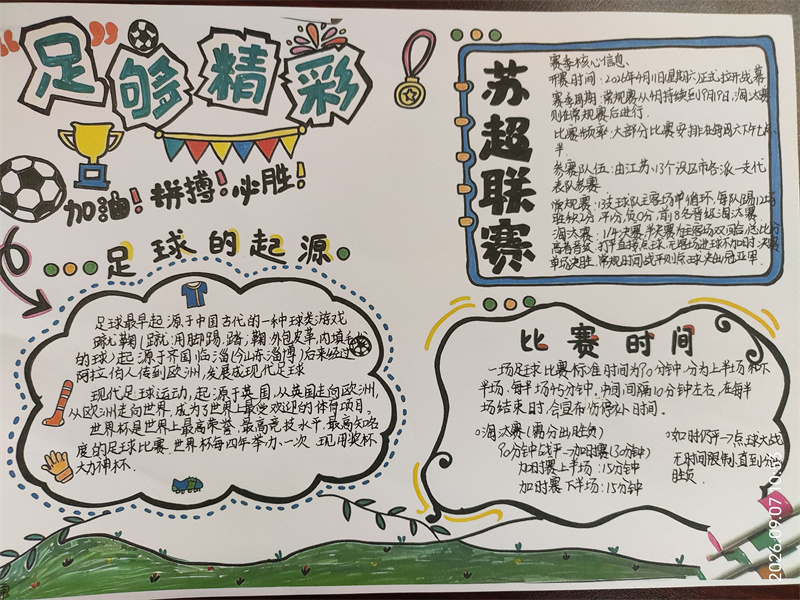 “足”够精彩
加油！拼搏！必胜！
足球的起源
足球最早起源于中国古代的一种球类游戏
蹴鞠(蹴:用脚踢、踏;鞠:外包皮革、内填
的球)起源于齐国临淄(今山东淄博)后来经过
阿拉伯人传到欧洲,发展成现代足球
现代足球运动,起源于英国,从英国走向欧洲,
从欧洲走向世界,成为了世界上最受欢迎的体育项目。
世界杯是世界上最高荣誉、最高竞技水平、最高知名
度的足球比赛,世界杯每四年举办一次 现用奖杯
大力神杯.
苏超联赛
赛季核心信息、
开赛时间:2026年4月11日(星期六)正式拉开战幕
赛季周期:常规赛从4月持续到9月19日,淘汰赛
则在常规赛后进行.
比赛频率:大部分比赛安排在每周六下午七点
半.
参赛队伍:由江苏13个设区市各派一支代
表队参赛
常规赛:13支球队主客场单循环,每队踢12场
胜
2分,平分
0分,前8名晋级淘汰赛.
淘汰赛:1/4决赛、半决赛为主客场双回合,总比分
高者晋级,打平直接点球,无客场进球不加时,决赛
单场决胜,常规时间战平则点球决出冠亚军.
比赛时间
一场足球比赛标准时间为90分钟,分为上半场和下
半场.每半场45分钟.中间间隔10分钟左右,在每半
场结束时,会宣布伤停补时间.
淘汰赛(需分出胜负)
90分钟战平→加时赛(30分钟)
加时赛上半场:15分钟
加时赛下半场:15分钟
如时仍平→点球大战
无时间限制,直到分
胜负.
2026.09.07